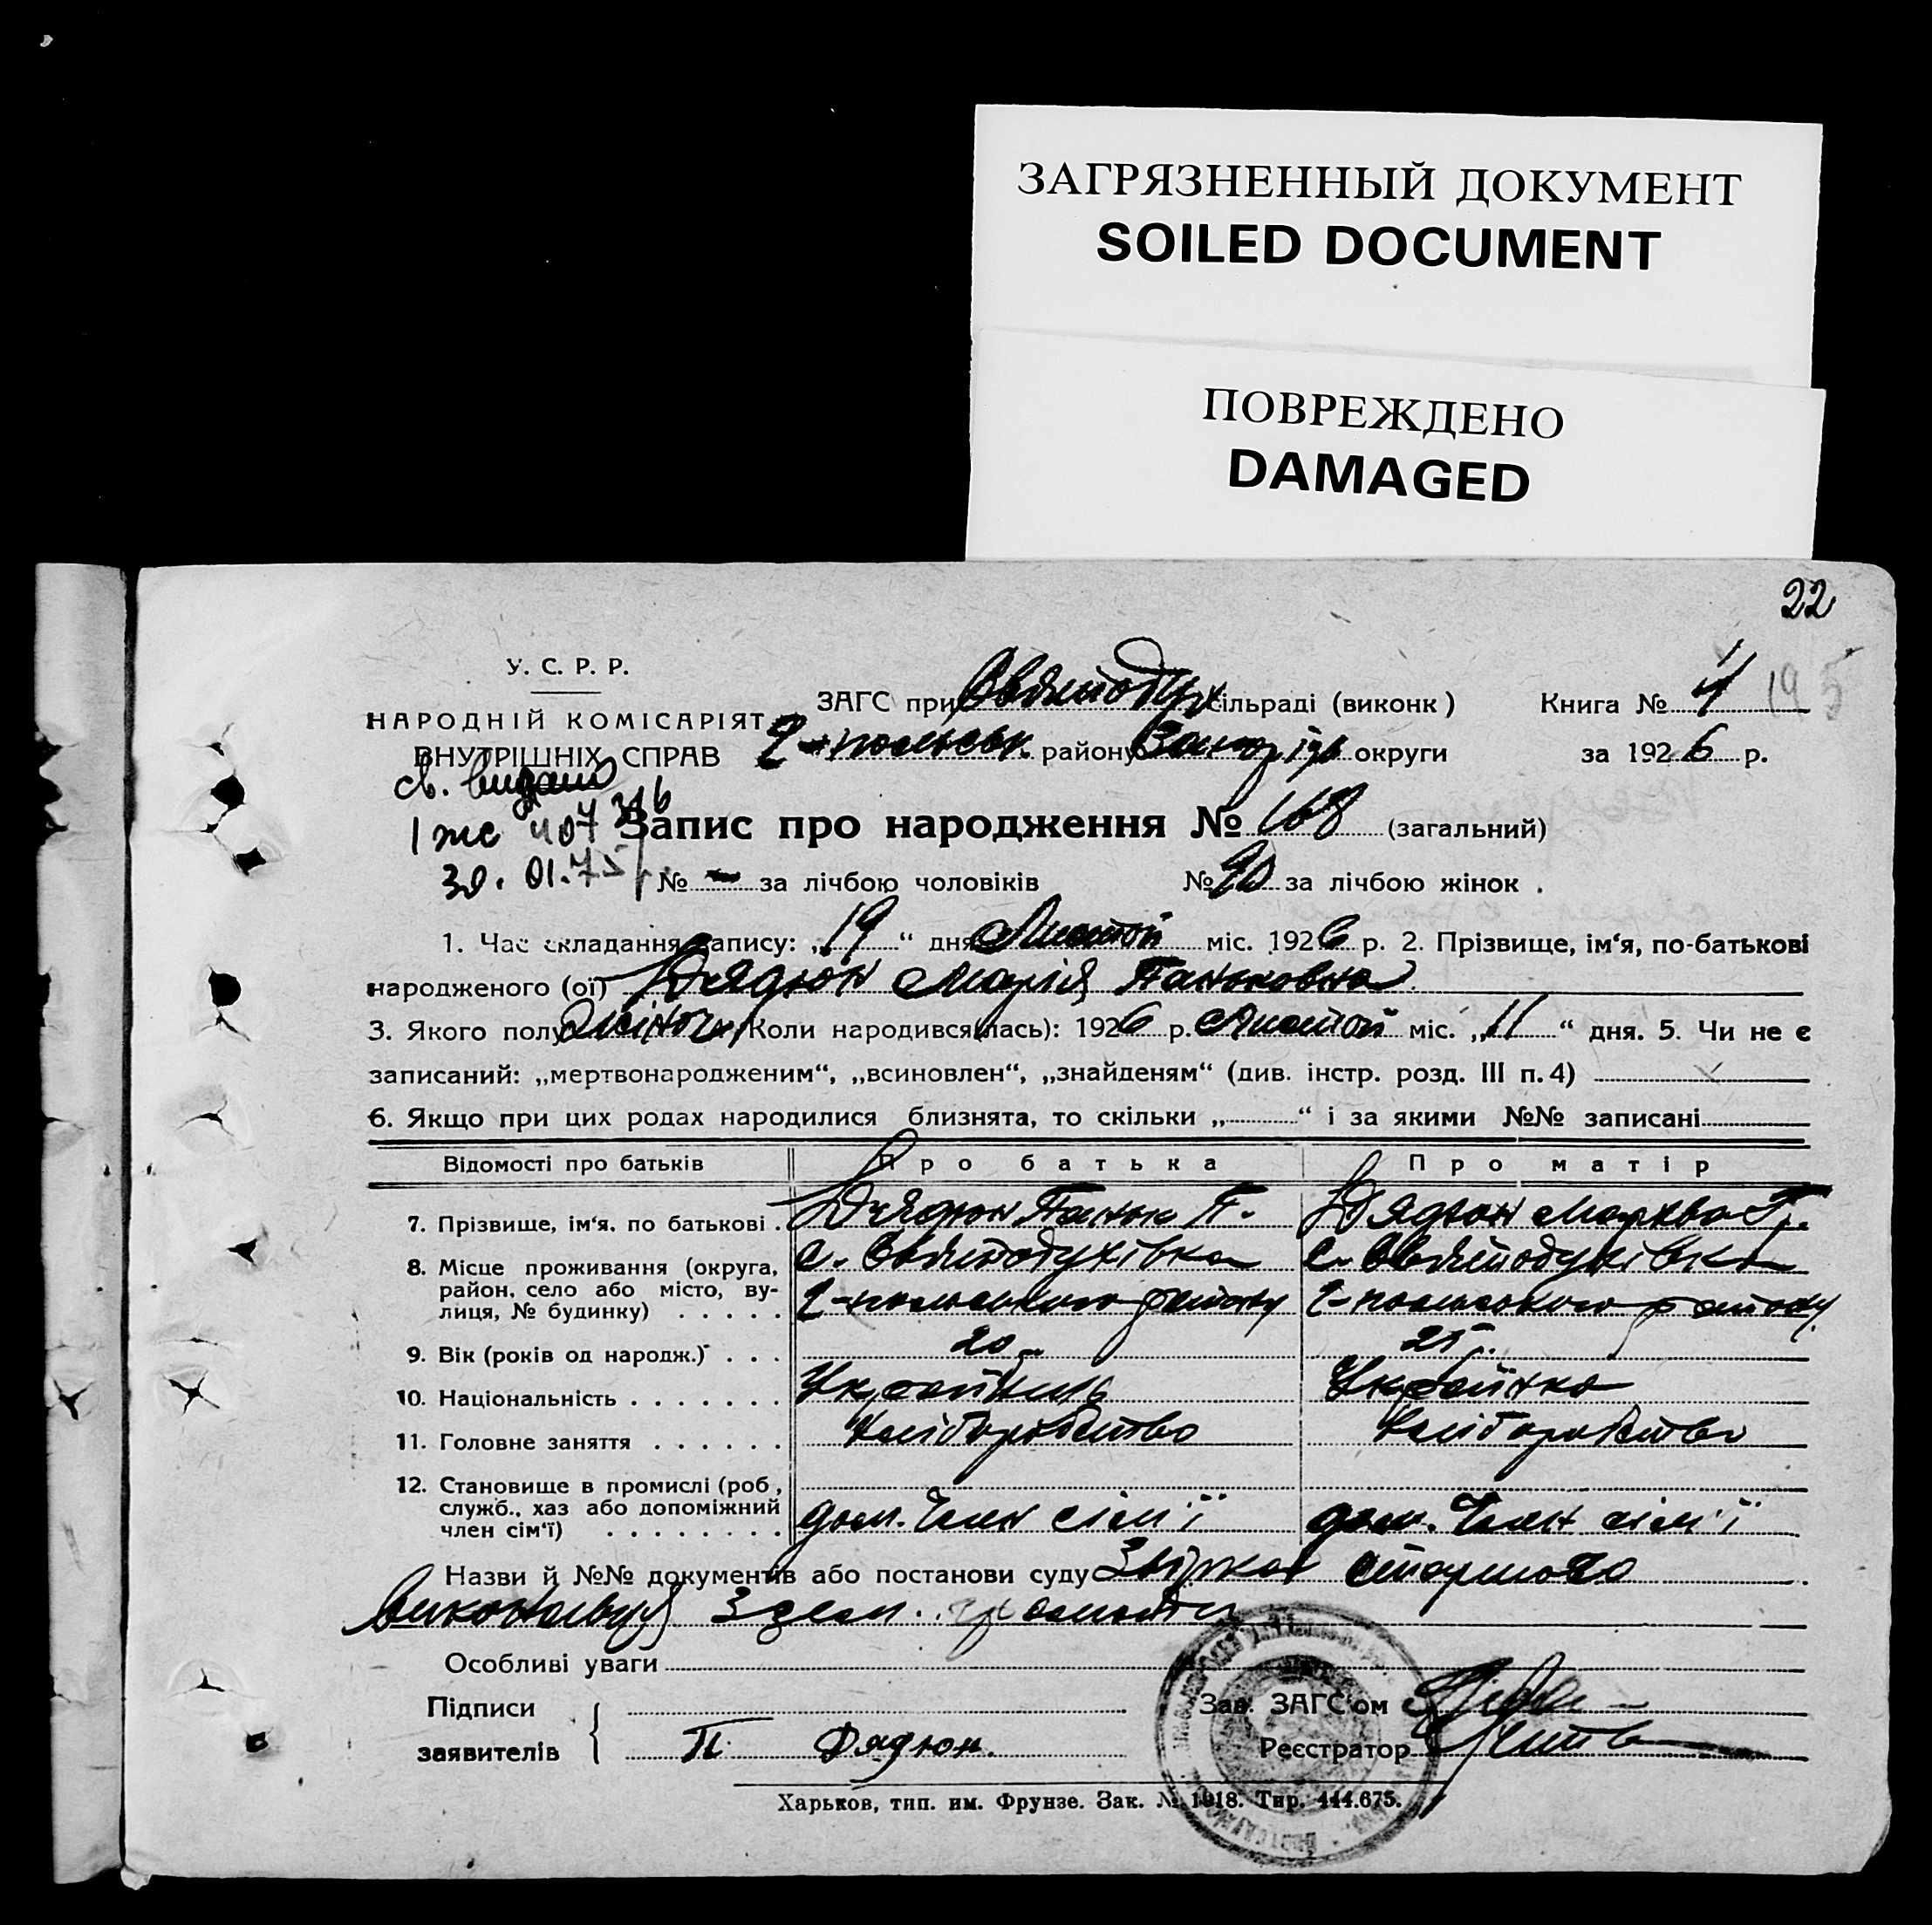 ЗАГРЯЗНЕННЫЙ ДОКУМЕНТ
SOILED DOCUMENT
ПОВРЕЖДЕНО
DAMAGED
22
У. С. Р. Р.
НАРОДНІЙ КОМІСАРІЯТ
ВНУТРІШНІХ СПРАВ
ЗАГС при Святодух сільраді (виконк)
Книга № 4 195
районy Запоріж округи
за 1926 р.
св. видано
1 жс 407376
30. 01. 75 р.
Запис про народження № 168 (загальний)
№ – за лічбою чоловіків № 90 за лічбою жінок.
1. Час складання запису: „19“ дня міс. 1926 р. 2. Прізвище, ім‘я, по-батькові
народженого (ої) Дядюн Марія Паньковна
3. Якого полу жіноч. Коли народився(лась): 1926 р. міс. „11“ дня. 5. Чи не є
записаний: „мертвонародженим“, „всиновлен“, „знайденям“ (див. інстр. розд. III п. 4)
6. Якщо при цих родах народилися близнята, то скільки „ “ і за якими №№ записані
Відомості про батьків Про батька Про матір
7. Прізвище, ім‘я, по батькові . Дядюн Панько П. Дядюн
8. Місце проживання (округа, с. Святодухівка с. Святодухівка
район, село або місто, ву-
лиця, № будинку) . . . . . -польського району -польського району
9. Вік (років од народж.) . . . 20 25
10. Національність . . . . . . . Українець Українка
11. Головне заняття . . . . . . Хліборобство Хліборобство
12. Становище в промислі (роб.,
служб., хаз або допоміжний
член сім‘ї) . . . . . . . . доп. член сім'ї доп. член сім'ї
Назви й №№ документів або постанови суду
виконавця з зем. громади
Особливі уваги
Підписи
заявителів П. Дядюн.
Зав. ЗАГС‘ом
Реєстратор
Харьков, тип. им. Фрунзе. Зак. № 1918. Тир. 444.675.